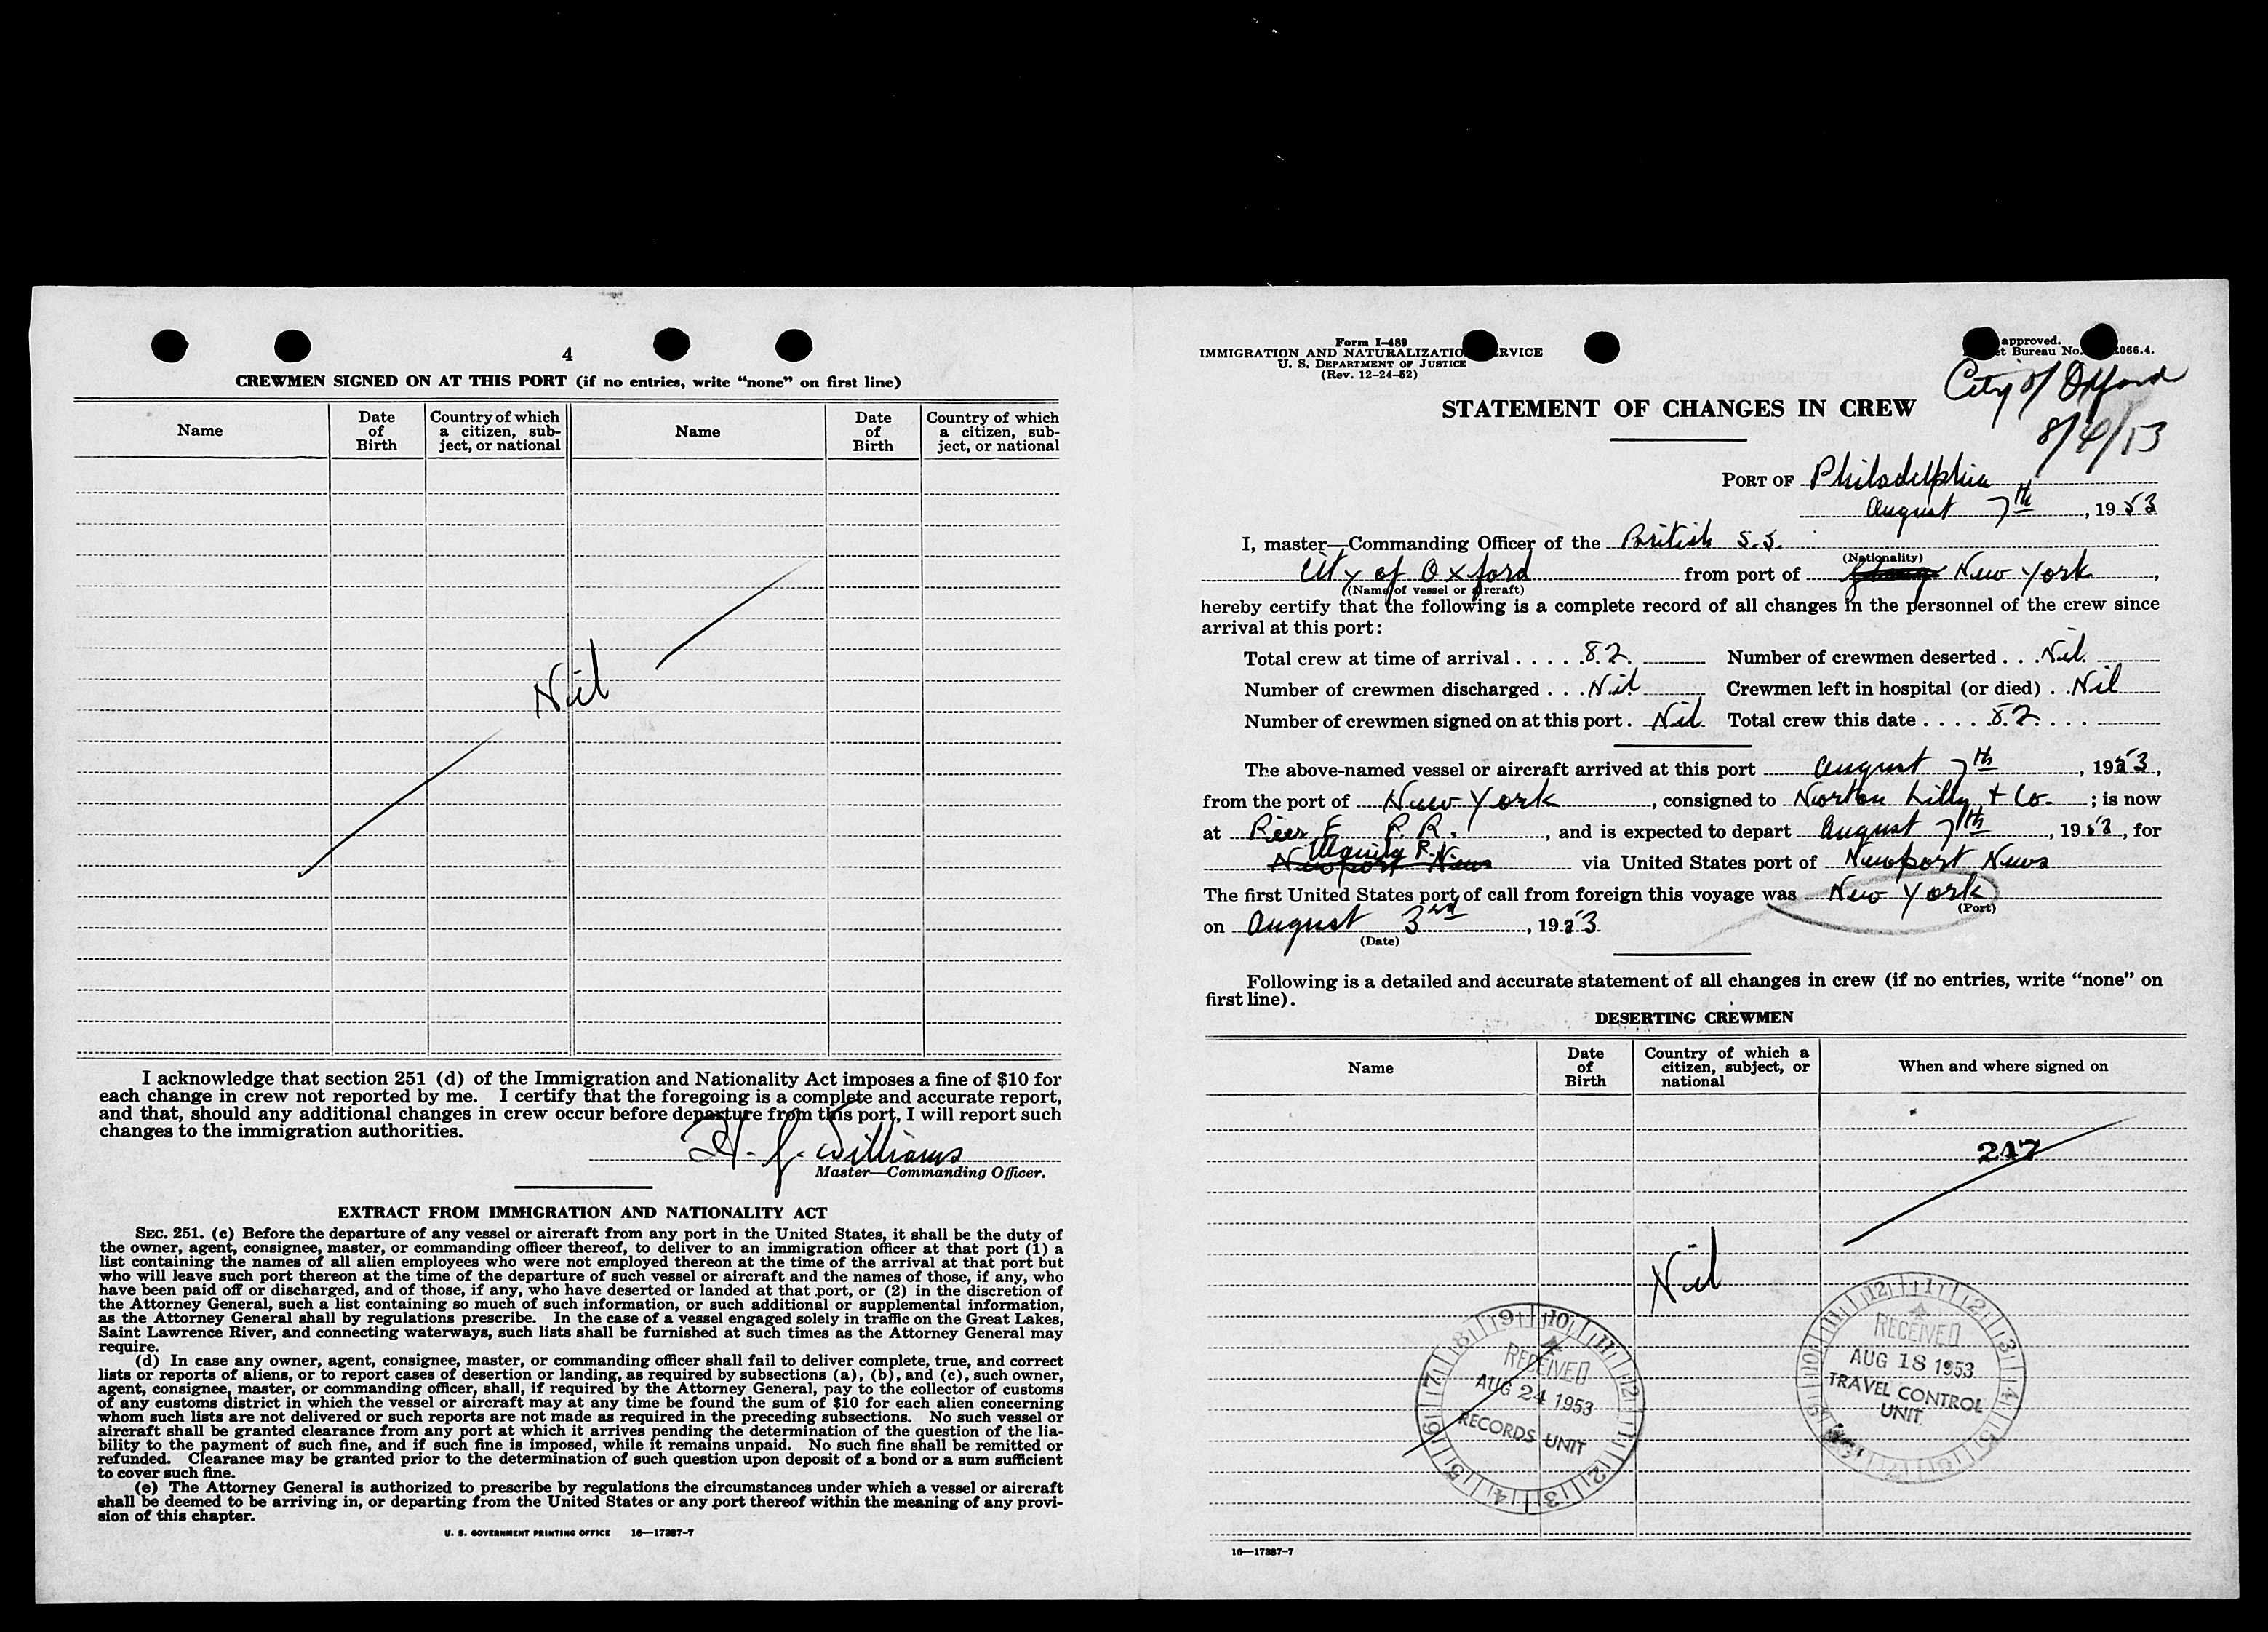 4
CREWMEN SIGNED ON AT THIS PORT (if no entries, write “none” on first line)
Name
Date of Birth
Country of which a citizen, sub-ject, or national
Name
Date of Birth
Country of which a citizen, sub-ject, or national
Nil
I acknowledge that section 251 (d) of the Immigration and Nationality Act imposes a fine of $10 for
each change in crew not reported by me. I certify that the foregoing is a complete and accurate report,
and that, should any additional changes in crew occur before departure from this port, I will report such
changes to the immigration authorities.
H. J. Williams
Master—Commanding Officer.
EXTRACT FROM IMMIGRATION AND NATIONALITY ACT
SEC. 251. (c) Before the departure of any vessel or aircraft from any port in the United States, it shall be the duty of
the owner, agent, consignee, master, or commanding officer thereof, to deliver to an immigration officer at that port (1) a
list containing the names of all alien employees who were not employed thereon at the time of the arrival at that port but
who will leave such port thereon at the time of the departure of such vessel or aircraft and the names of those, if any, who
have been paid off or discharged, and of those, if any, who have deserted or landed at that port, or (2) in the discretion of
the Attorney General, such a list containing so much of such information, or such additional or supplemental information,
as the Attorney General shall by regulations prescribe. In the case of a vessel engaged solely in traffic on the Great Lakes,
Saint Lawrence River, and connecting waterways, such lists shall be furnished at such times as the Attorney General may
require.
(d) In case any owner, agent, consignee, master, or commanding officer shall fail to deliver complete, true, and correct
lists or reports of aliens, or to report cases of desertion or landing, as required by subsections (a), (b), and (c), such owner,
agent, consignee, master, or commanding officer, shall, if required by the Attorney General, pay to the collector of customs
of any customs district in which the vessel or aircraft may at any time be found the sum of $10 for each alien concerning
whom such lists are not delivered or such reports are not made as required in the preceding subsections. No such vessel or
aircraft shall be granted clearance from any port at which it arrives pending the determination of the question of the lia-
bility to the payment of such fine, and if such fine is imposed, while it remains unpaid. No such fine shall be remitted or
refunded. Clearance may be granted prior to the determination of such question upon deposit of a bond or a sum sufficient
to cover such fine.
(e) The Attorney General is authorized to prescribe by regulations the circumstances under which a vessel or aircraft
shall be deemed to be arriving in, or departing from the United States or any port thereof within the meaning of any provi-
sion of this chapter.
U. S. GOVERNMENT PRINTING OFFICE 16—17387-7
Form I-489
IMMIGRATION AND NATURALIZATIO RVICE
U. S. DEPARTMENT OF JUSTICE
(Rev. 12-24-52)
approved.
t Bureau No. 066.4.
City of Oxford
STATEMENT OF CHANGES IN CREW
PORT OF Philadelphia
August 7th, 1953
I, master—Commanding Officer of the British S.S.
(Nationality)
City of Oxford from port of New York,
(Name of vessel or aircraft)
hereby certify that the following is a complete record of all changes in the personnel of the crew since
arrival at this port:
Total crew at time of arrival . . . . . 82. Number of crewmen deserted . . . Nil.
Number of crewmen discharged . . . Nil Crewmen left in hospital (or died) . . Nil
Number of crewmen signed on at this port . Nil. Total crew this date . . . . . 82. . . .
The above-named vessel or aircraft arrived at this port August 7th, 1953,
from the port of New York, consigned to Norton Lilly & Co. ; is now
at Pier F P. R., and is expected to depart August 7th, 1953, for
Manila P.I. Newport News via United States port of Newport News
The first United States port of call from foreign this voyage was New York
(Port)
on August 3rd, 1953.
(Date)
Following is a detailed and accurate statement of all changes in crew (if no entries, write “none” on
first line).
DESERTING CREWMEN
Name
Date of Birth
Country of which a citizen, subject, or national
When and where signed on
247
Nil
RECEIVED
AUG 24 1953
RECORDS UNIT
RECEIVED
AUG 18 1953
TRAVEL CONTROL
UNIT
16—17387-7